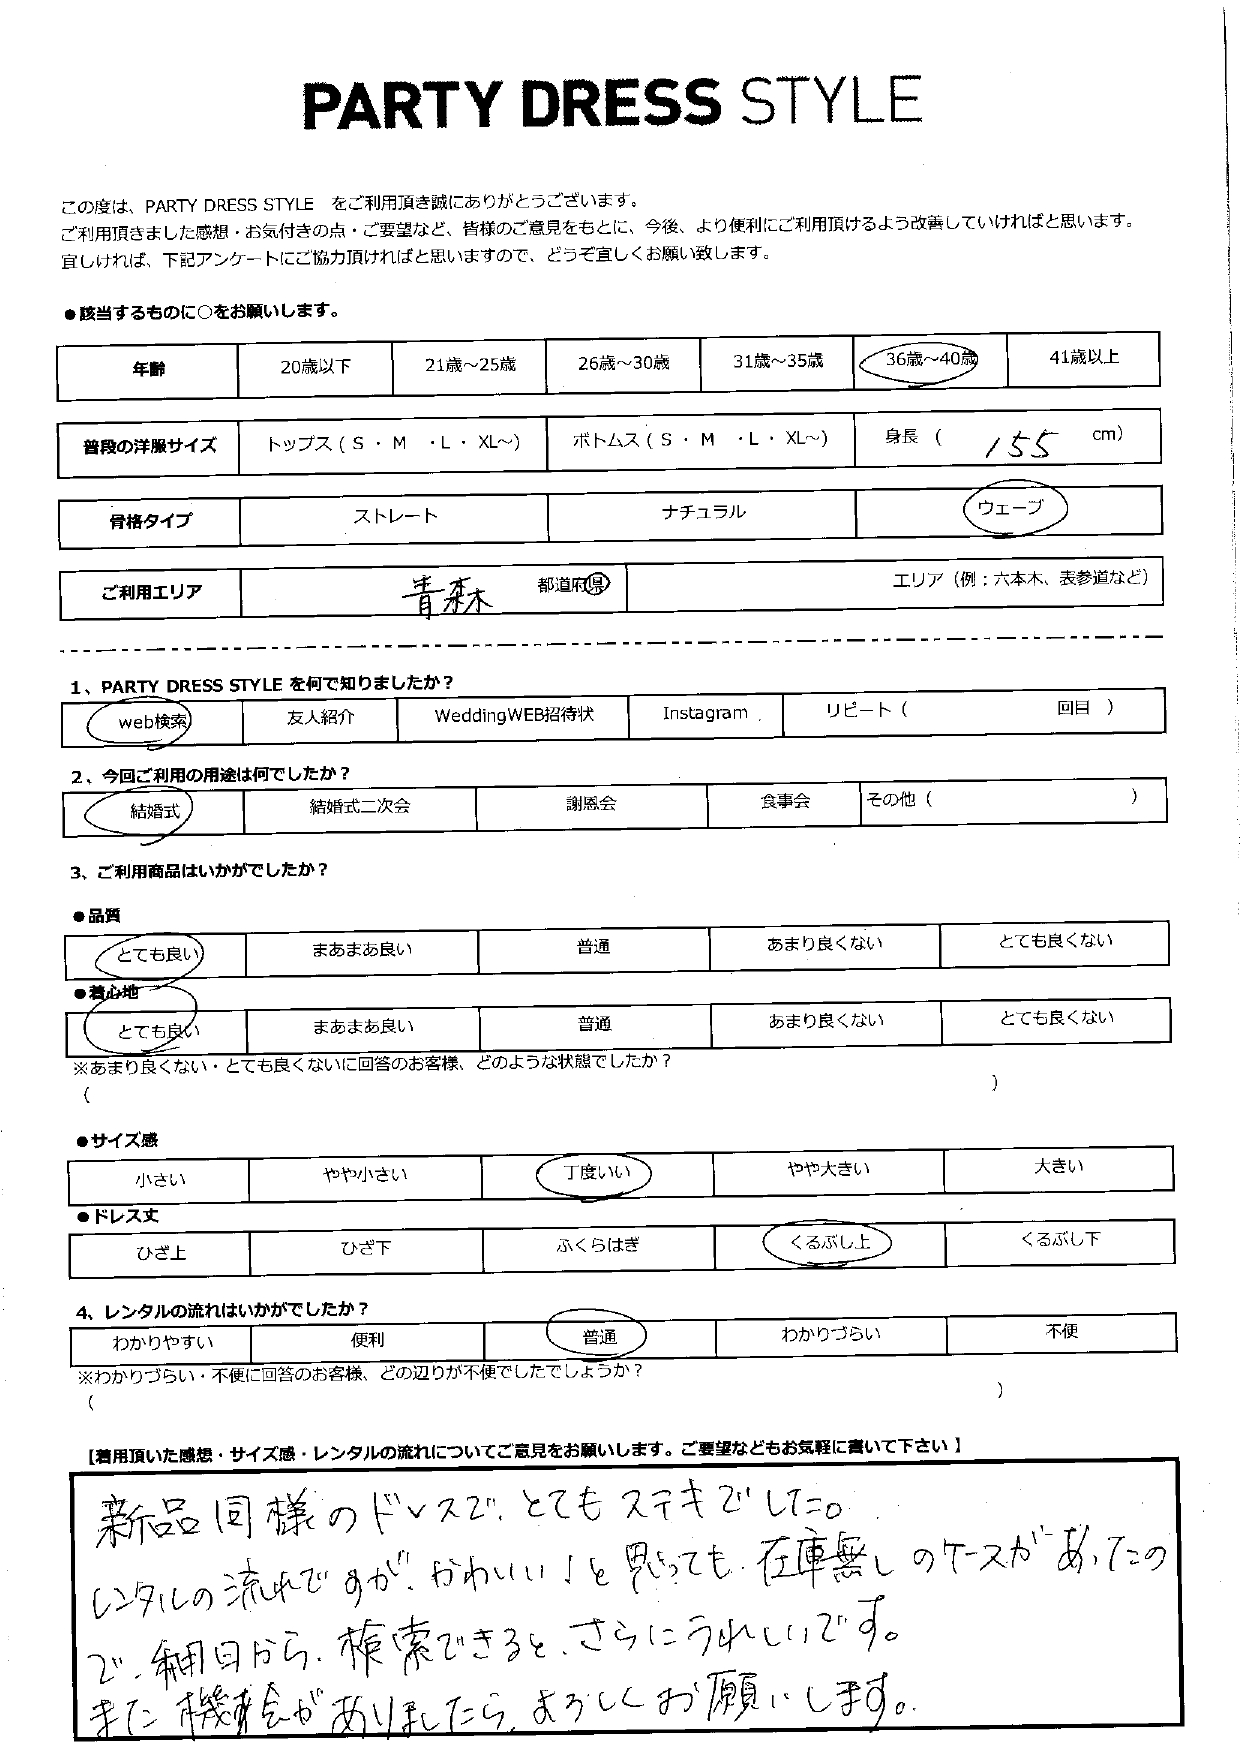 PARTY DRESS STYLE
この度は、PARTY DRESS STYLE をご利用頂き誠にありがとうございます。
ご利用頂きました感想・お気付きの点・ご要望など、皆様のご意見をもとに、今後、より便利にご利用頂けるよう改善していければと思います。
宜しければ、下記アンケートにご協力頂ければと思いますので、どうぞ宜しくお願い致します。
●該当するものに○をお願いします。
年齢 20歳以下 21歳～25歳 26歳～30歳 31歳～35歳 36歳～40歳 41歳以上
普段の洋服サイズ トップス ( S ・ M ・L ・ XL～) ボトムス ( S ・ M ・L ・ XL～) 身長 ( 155 cm)
骨格タイプ ストレート ナチュラル ウェーブ
ご利用エリア 青森 都道府県 エリア（例：六本木、表参道など）
1、PARTY DRESS STYLE を何で知りましたか？
web検索 友人紹介 WeddingWEB招待状 Instagram リピート ( 回目 )
2、今回ご利用の用途は何でしたか？
結婚式 結婚式二次会 謝恩会 食事会 その他 ( )
3、ご利用商品はいかがでしたか？
●品質
とても良い まあまあ良い 普通 あまり良くない とても良くない
●着心地
とても良い まあまあ良い 普通 あまり良くない とても良くない
※あまり良くない・とても良くないに回答のお客様、どのような状態でしたか？
( )
●サイズ感
小さい やや小さい 丁度いい やや大きい 大きい
●ドレス丈
ひざ上 ひざ下 ふくらはぎ くるぶし上 くるぶし下
4、レンタルの流れはいかがでしたか？
わかりやすい 便利 普通 わかりづらい 不便
※わかりづらい・不便に回答のお客様、どの辺りが不便でしたでしょうか？
( )
【着用頂いた感想・サイズ感・レンタルの流れについてご意見をお願いします。ご要望などもお気軽に書いて下さい 】
新品同様のドレスで、とてもステキでした。
レンタルの流れですが、かわいい！と思っても、在庫無しのケースがあったの
で、利用日から、検索できると、さらにうれしいです。
また機会がありましたら、よろしくお願いします。